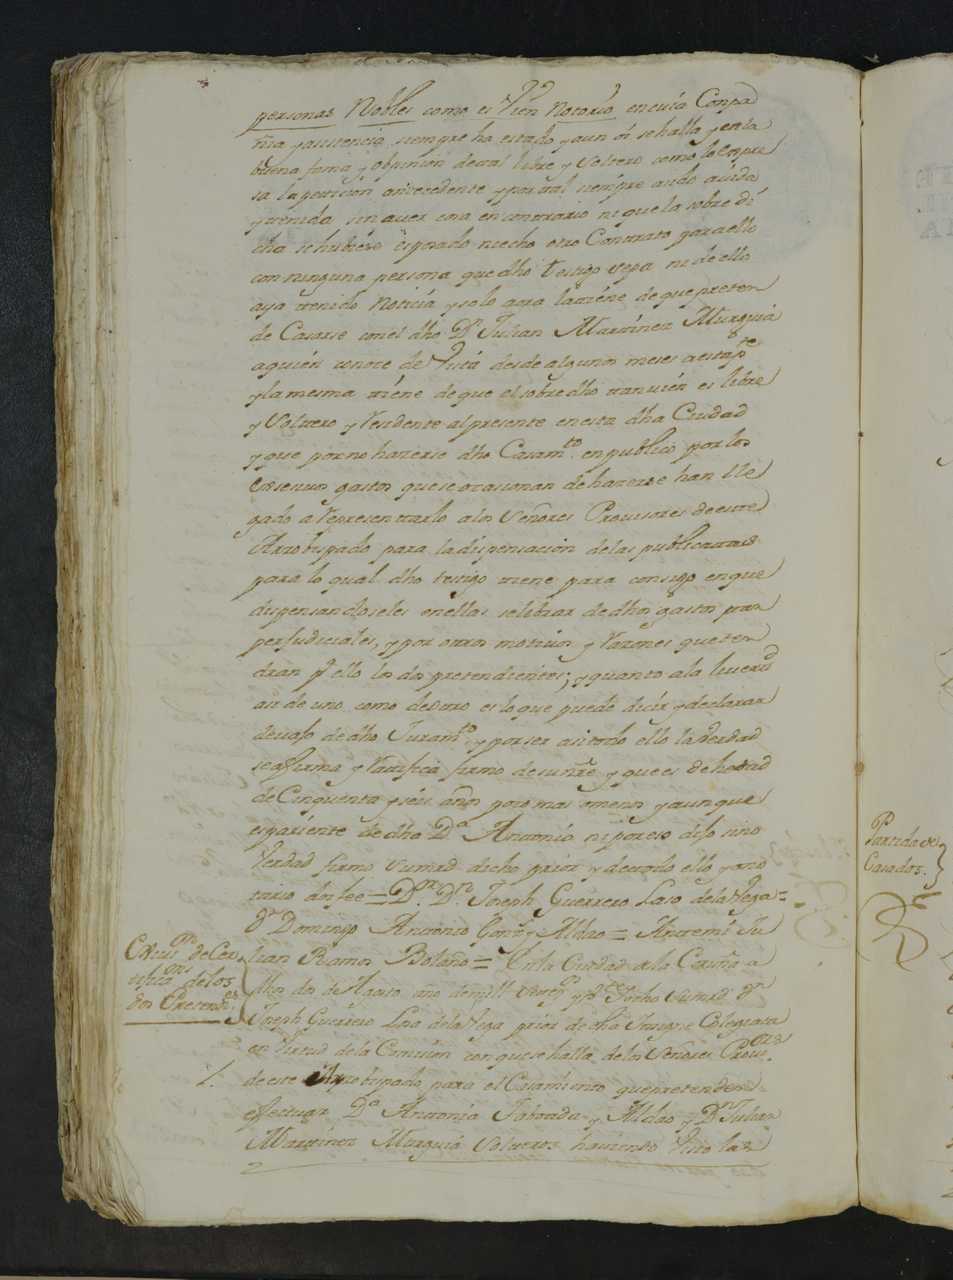 personas Nobles como es Vien notorio en cuia Conpa
ñia y asistencia siempre ha estado y aun oi se halla y en la
buena fama y opinion de tal libre y Soltera como lo expre
sa la peticion antecedente y por tal siempre a sido avida
y tenida sin aver cosa en contrario ni que la sobre di
cha se hubiese esposado ni echo otro Contrato para ello
con ninguna persona que dho testigo sepa ni de ello
aya tenido Noticia y solo aora la tiene de que preten
de Casarse con el dho Dn Julian Martinez Murguia
a quien conoce de Vista desde algunos meses a esta pte
y la mesma tiene de que el sobre dho tanvien es libre
y Soltero y Residente al presente en esta dha Ciudad
y que por no hazerse dho Casamto en publico por los
Exsesivos gastos que se ocasionan de hazerse han lle
gado a Representarlo a los Señores Provisores de este
Arzobispado para la dispensacion de las publicatas
para lo qual dho testigo tiene para consigo en que
dispensandoseles en ellas se libran de dhos gastos tan
perjudiciales, y por otros motivos y Razones que ten
dran pa ello los dos pretendientes; y quanto a la livertd
asi de uno como de otro es lo que puede dicir y declarar
devajo de dho Juramto, y por ser asi todo ello la Verdad
se afirma y Ratifica firmo de su nre y que es de hedad
de Cinquenta y seis años poco mas o menos y aunque
es pariente de dha Da Antonia ni por eso dijo sino
Verdad firmo su mrd dicho prior y de todo ello yo no
tario doi fee = Dr. Dn. Joseph Guerrero Laso de la Vega =
Dn Domingo Antonio Gonz y Aldao = Antemi Ju
lian Ramos Bolaño = En la Ciudad de la Coruña a
dhos dos de Agosto año de mill Setezs y dho su mrd Dn
Joseph Guerrero Laso de la Vega prior de dha Insigne Colegiata
en Virtud de la Comision con que se halla de los Señores Provi.ores
de este Arzobispado para el Casamiento que pretenden
efectuar Da Antonia Taboada y Aldao y Dn Julian
Martinez Murguia Solteros haviendo Visto las
de Cer
tificaons de los
dos Pretendes
Partida de
Casados.